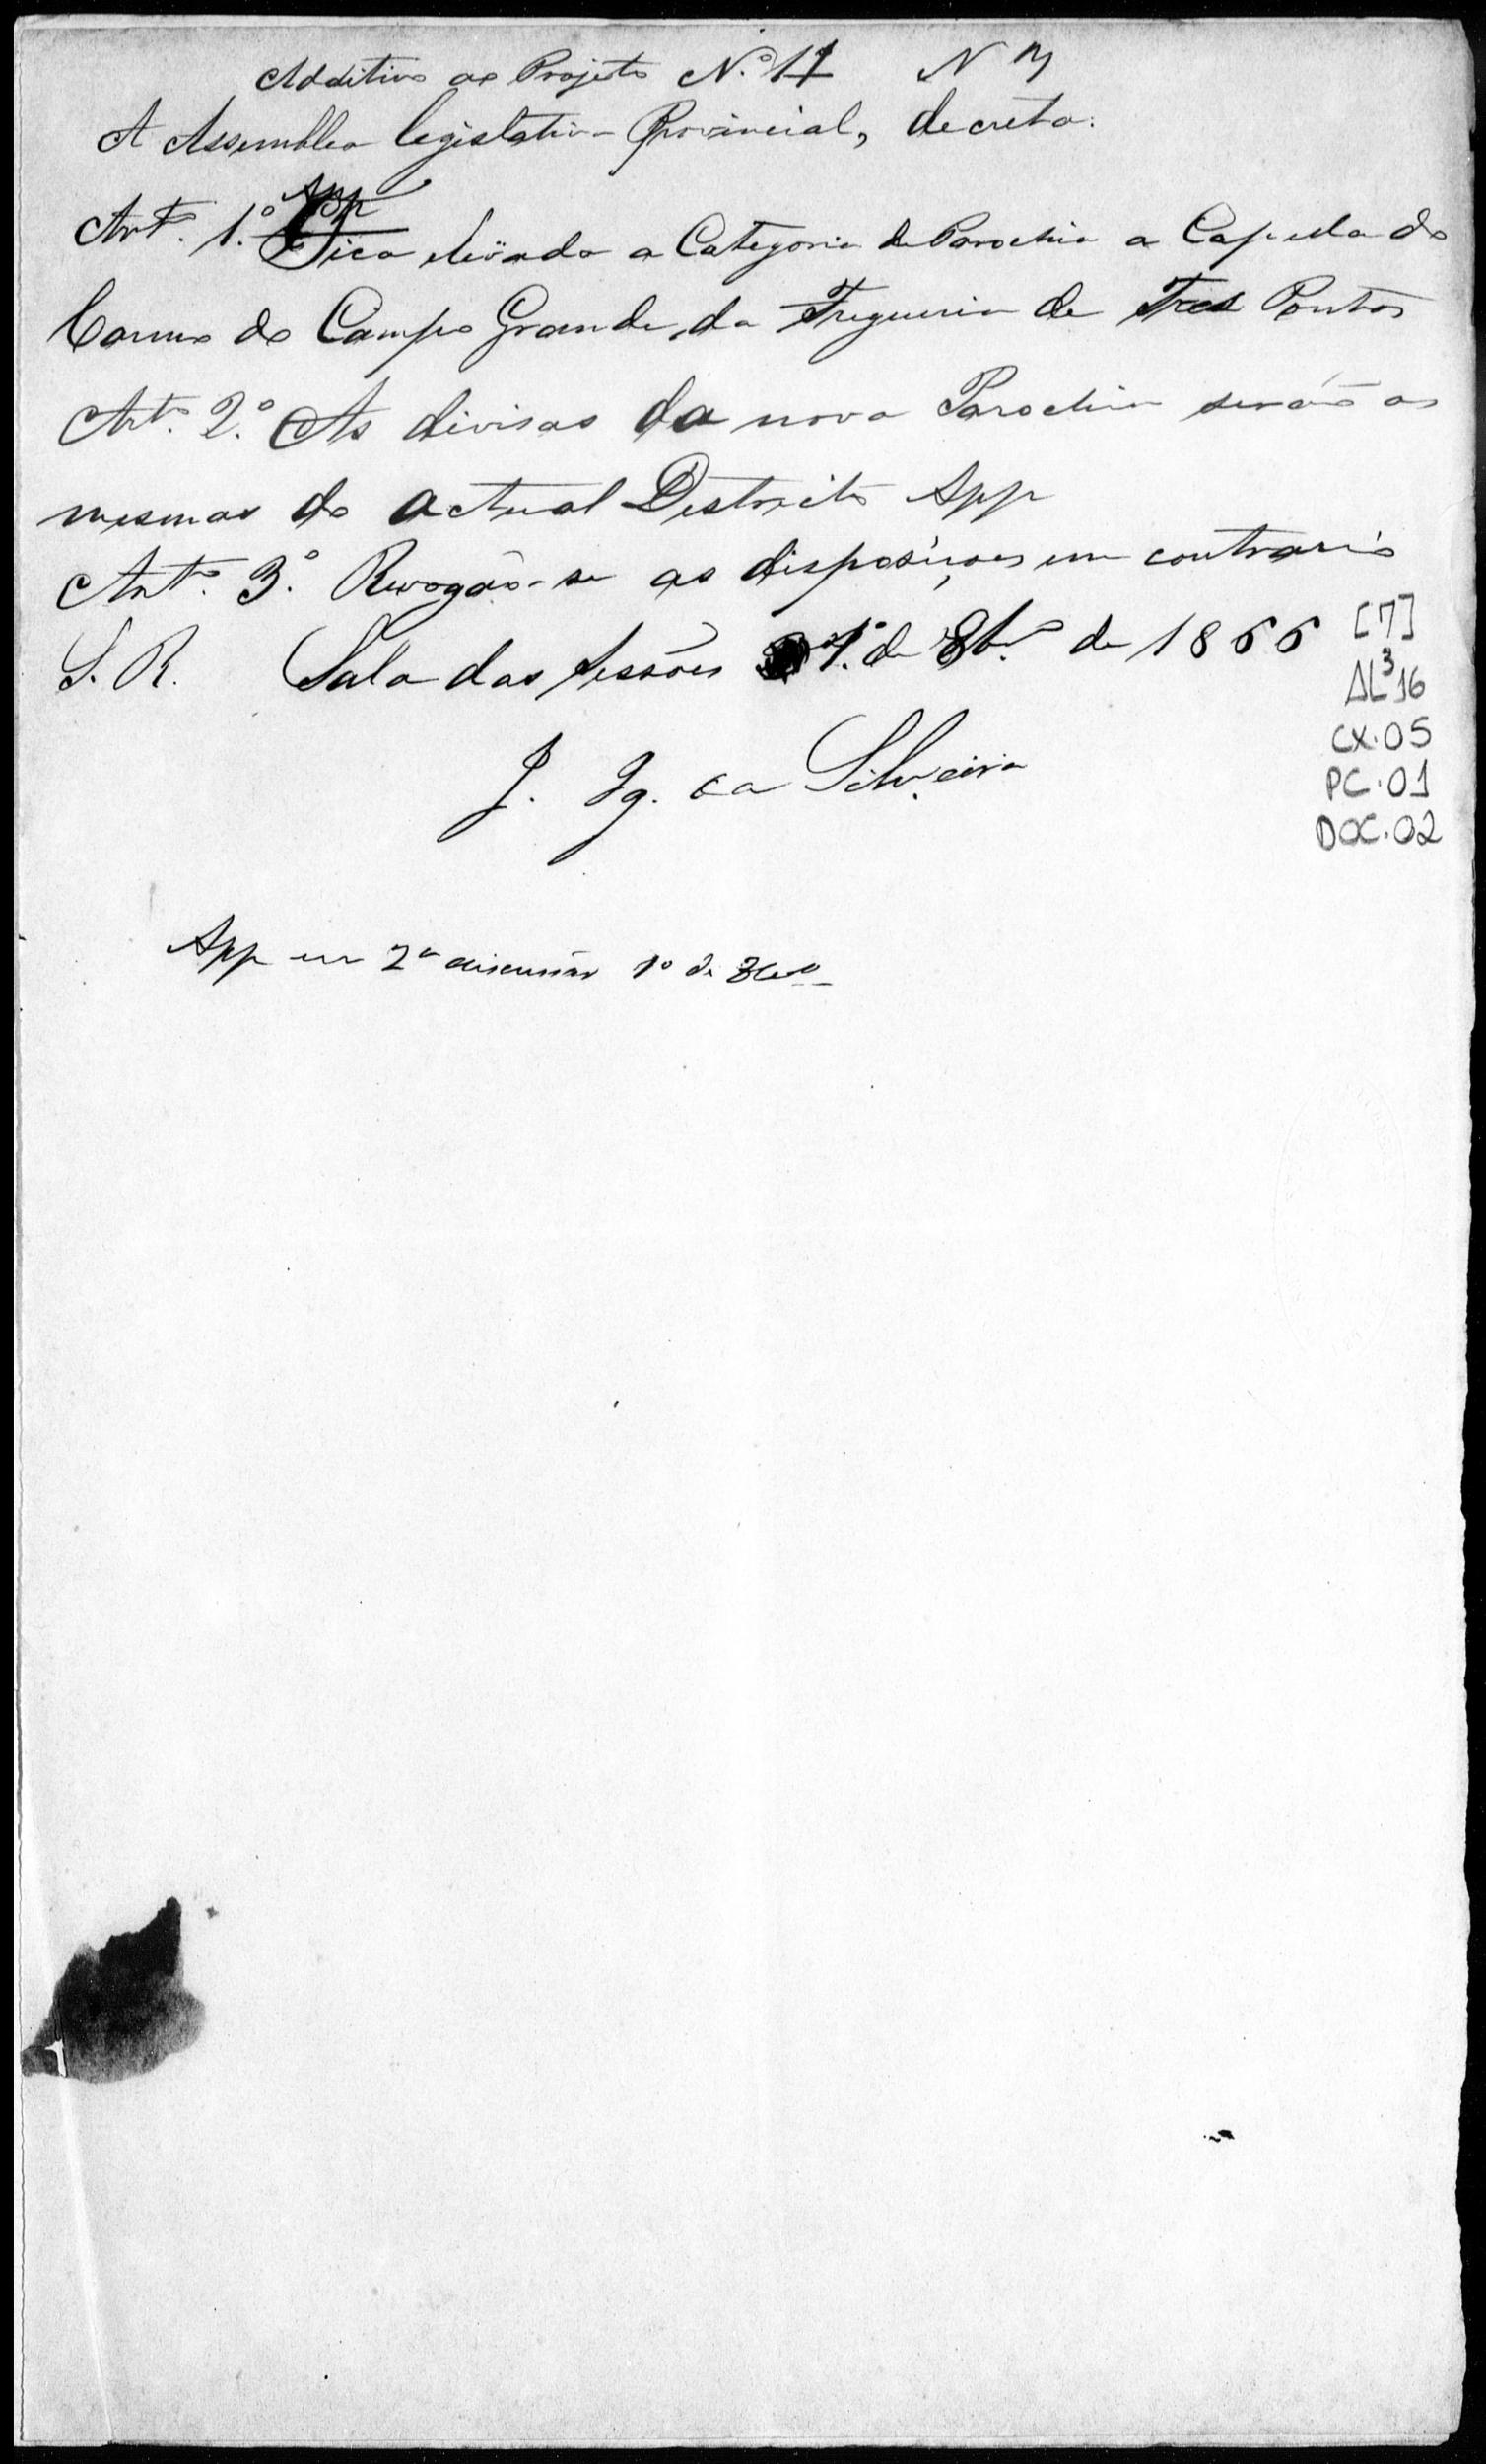 Additivo ao Projeto N.º 11 N
A Assemblea legislativa Provincial, decreta:
App
Art.º 1.º Fica elevada a Categoria de Parochia a Capella do
Carmo do Campo Grande, da Freguezia de Tres Pontas
Art.º 2.º As divisas da nova Parochia serão as
mesmas do actual Districto App
Art.º 3.º Revogão-se as disposições em contrario
S. R. Sala das Sessões 1.º de 8br.º de 1866
J. Ig. da Silveira
[7]
AL³16
CX.05
PC.01
DOC.02
App em 2ª discussão 1º de 8bro